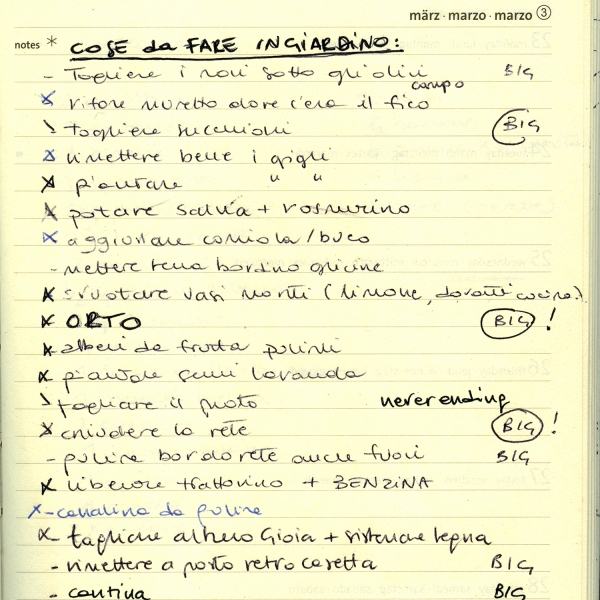 märz · marzo · marzo 3
notes * COSE da FARE IN GIARDINO:
- Togliere i rovi sotto gli olivi BIG
campo
x rifare muretto dove c'era il fico
\ togliere succhioni BIG
x rimettere bene i gigli
x piantare " "
x potare salvia + rosmarino
x aggiustare carriola / buco
- mettere terra bordino glicine
x svuotare vasi morti (limone, davanti cucina)
x ORTO BIG !
x alberi da frutta pulirli
x piantare semi lavanda
\ tagliare il prato never ending
x chiudere la rete BIG !
- pulire bordo rete anche fuori BIG
x liberare trattorino + BENZINA
x - canalina da pulire
x - tagliare albero Gioia + sistemare legna
- rimettere a posto retro casetta BIG
- cantina BIG